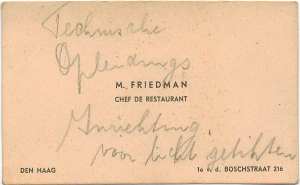 Technische
Opleidings
M. FRIEDMAN
CHEF DE RESTAURANT
Inrichting
voor licht getikten
DEN HAAG
1e v. d. BOSCHSTRAAT 216